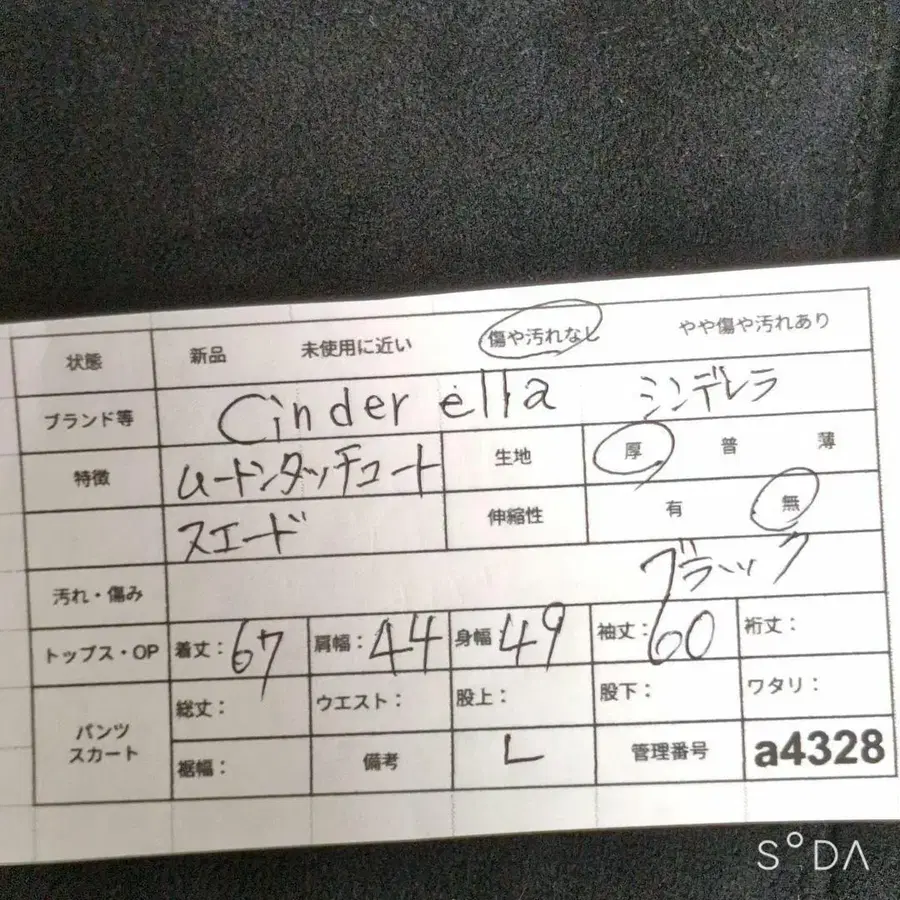 状態 新品 未使用に近い 傷や汚れなし やや傷や汚れあり
ブランド等 Cinder ella シンデレラ
特徴 ムートンタッチコート 生地 厚 普 薄
スエード 伸縮性 有 無
汚れ・傷み ブラック
トップス・OP 着丈:67 肩幅:44 身幅:49 袖丈:60 裄丈:
パンツ スカート 総丈: ウエスト: 股上: 股下: ワタリ:
裾幅: 備考 L 管理番号 a4328
SODA